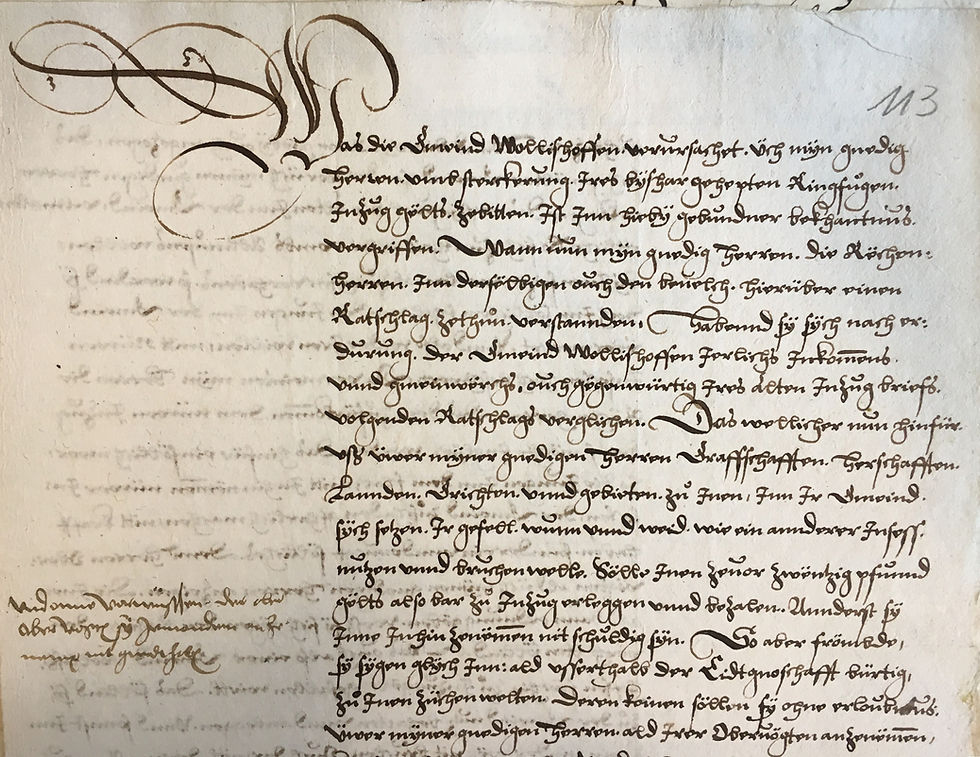 113
Was die Gmeind Wollishoffen verursachet. Üch myn gnedig
herren. umb sterckerung Ires byßhar gehepten Ringfügen.
Inzug gëlts. zebitten. Ist Inn hieby gebundner bekhantnus.
vergriffen. Wann nun myn gnedig herren. die Rëchen-
herren. Inn derselbigen ouch den beuelch. hierüber einen
Ratschlag. zethůn. verstannden, Habennd sy sych nach er-
durung. der Gmeind Wollishoffen Jerlichs Inkommens.
vnnd gmeinwerchs, ouch gegenwürtig Ires alten Inzug briefs.
volgenden Ratschlags verglichen. Das wellicher nun hinfür
vß üwer myner gnedigen herren Graffschafften. herschafften.
Lannden. Grichten. vnnd gebieten. zů Inen, Inn Ir Gmeind.
sych setzen. Ir gefell. wunn vnnd weid. wie ein annderer Insess.
nutzen vnnd bruchen welle. Sölle Inen zeuor zwëntzig pfunnd
gëlts also bar zů Inzug erleggen vnnd bezalen. Annderst sy
Inne Inhin zenëmmen nit schuldig syn. So aber frömbde,
sy sygen glych Inn: ald vsserthalb der Eidtgnoschafft bürtig,
zů Inen züchen welten. Deren keinen söllen sy ohne erloubtnus.
üwer myner gnedigen herren ald Irer Obervögten anzenëmmen,
vnd onne vorwüssen der
Obervögten sy Jemandem